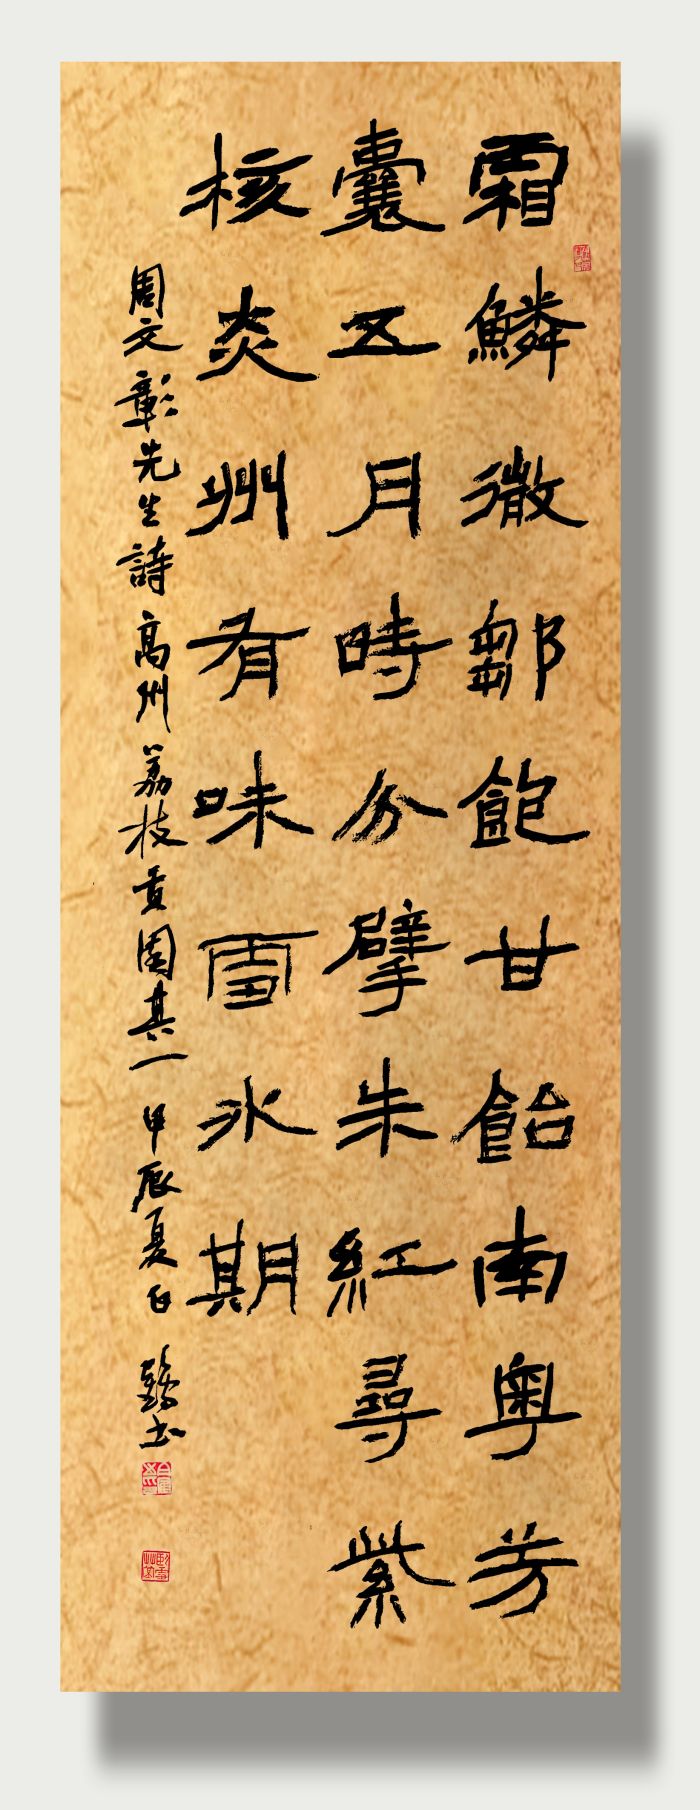 霜鱗微鄒飽甘飴南粵芳
囊五月時分擘朱紅尋紫
核炎州有味雪氷期
周文彰先生詩高州荔枝貢園其一甲辰夏白鶴書